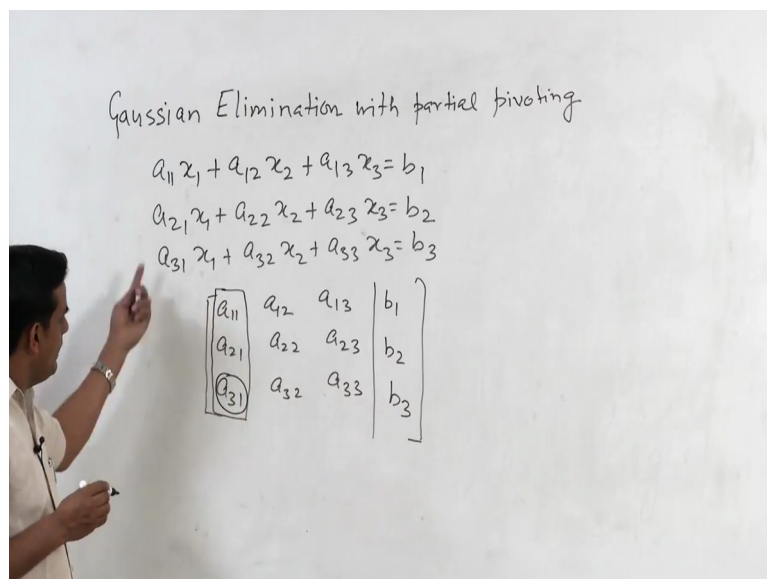 Gaussian Elimination with partial pivoting
a₁₁x₁ + a₁₂x₂ + a₁₃x₃ = b₁
a₂₁x₁ + a₂₂x₂ + a₂₃x₃ = b₂
a₃₁x₁ + a₃₂x₂ + a₃₃x₃ = b₃
a₁₁ a₁₂ a₁₃ | b₁
a₂₁ a₂₂ a₂₃ | b₂
a₃₁ a₃₂ a₃₃ | b₃